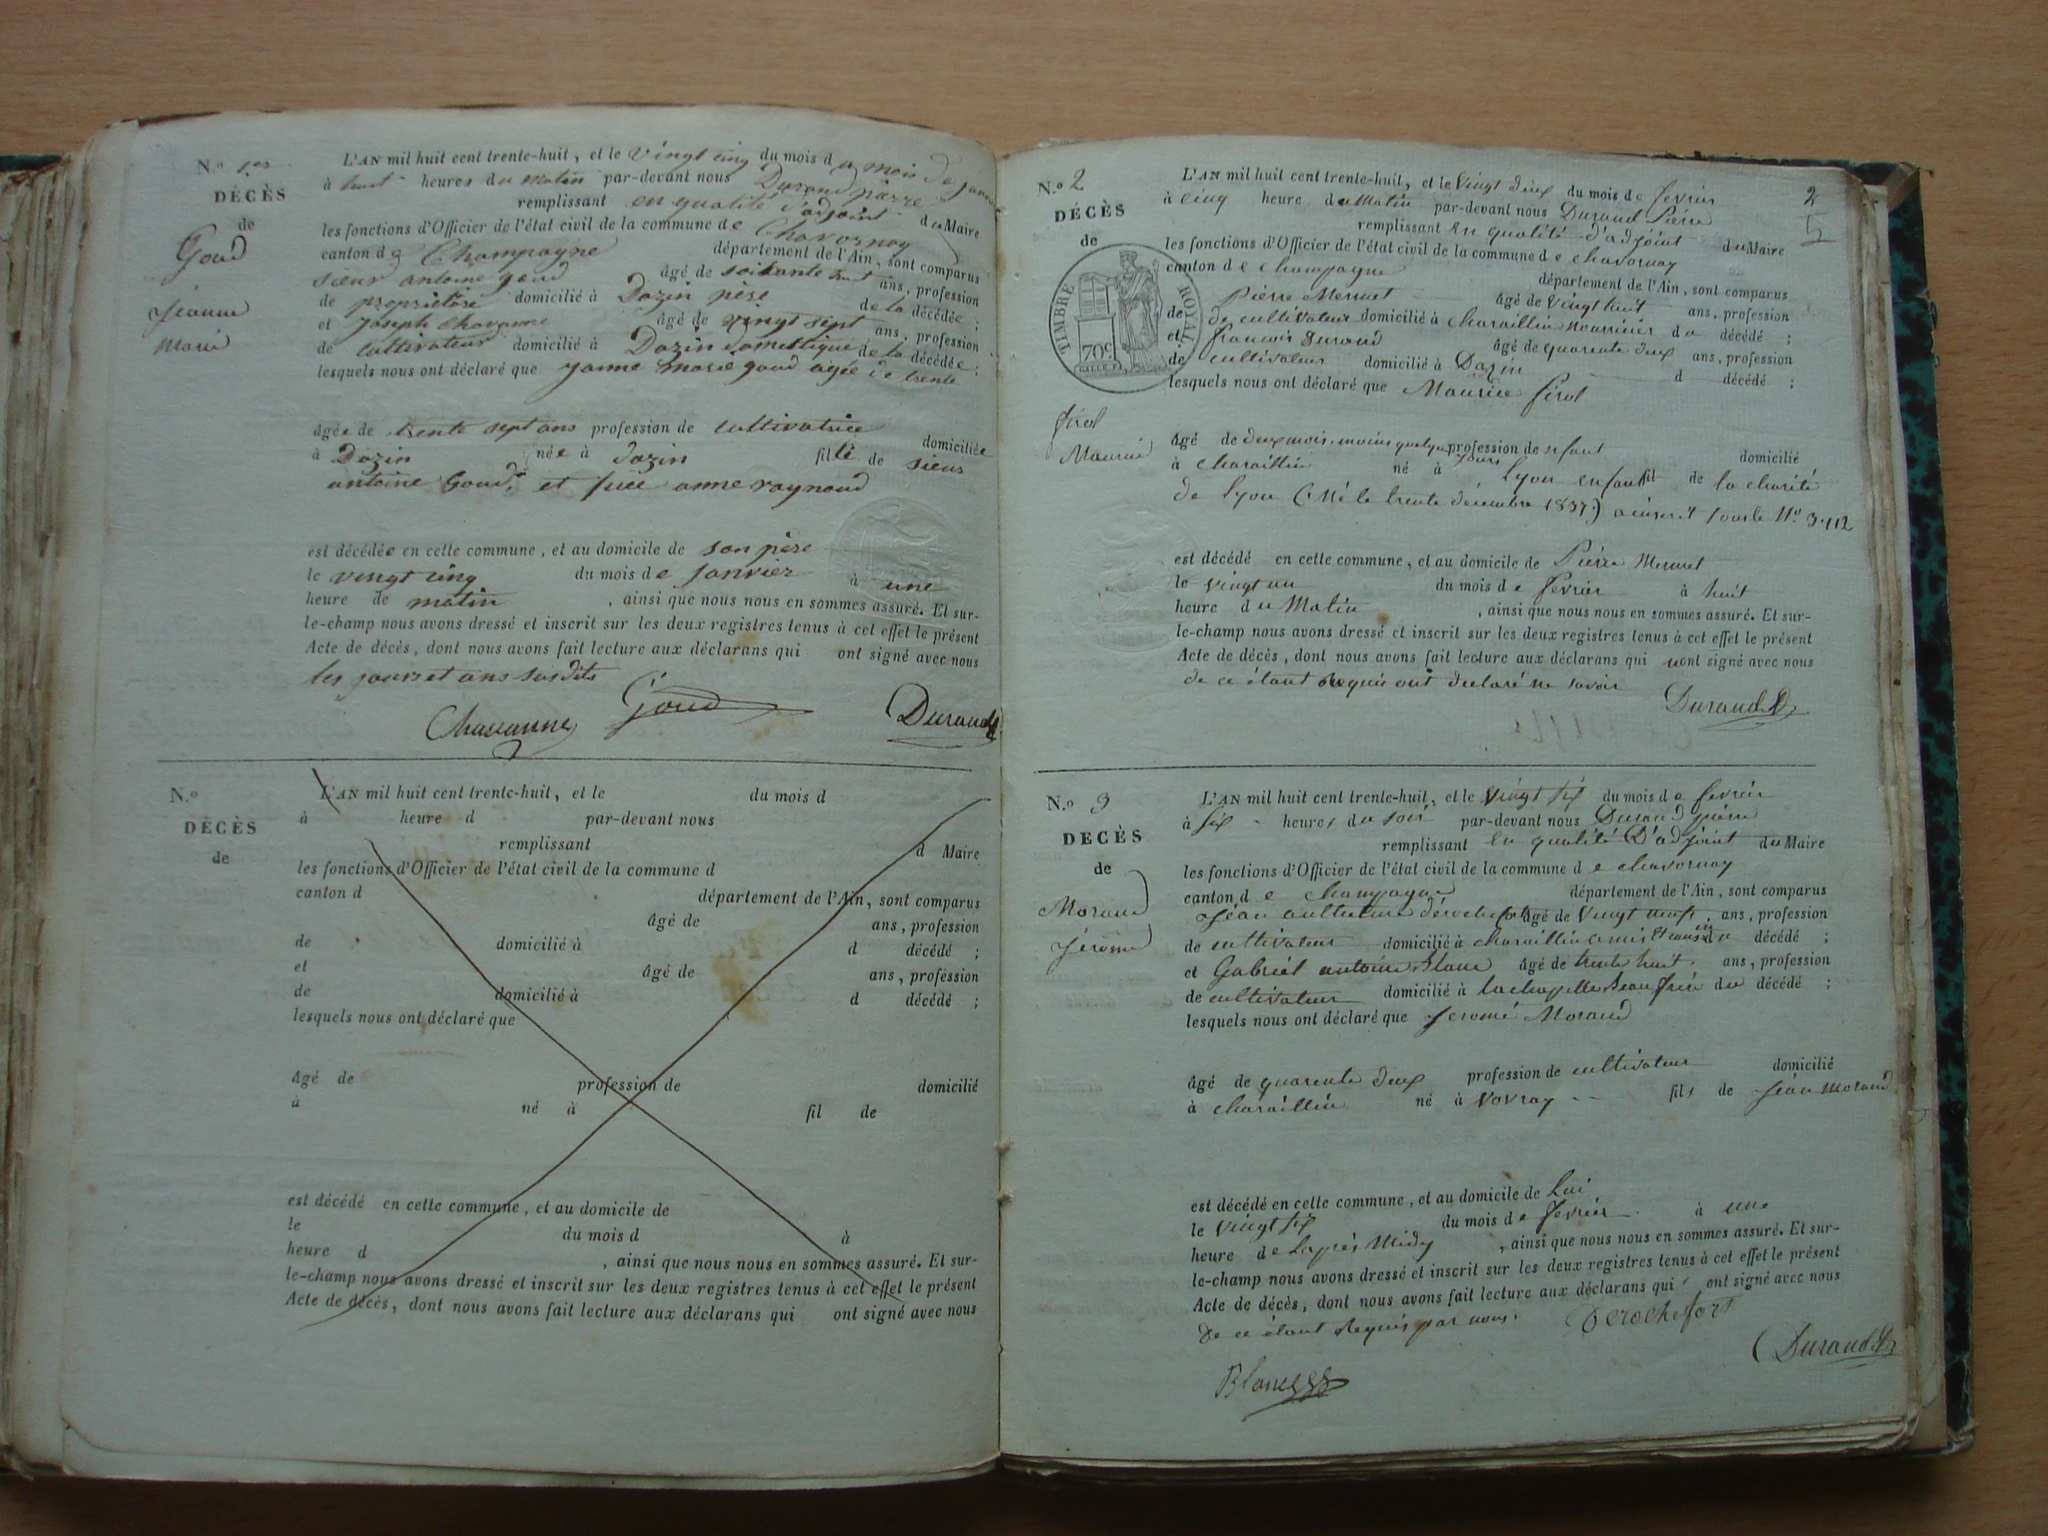 N.o 1er
DÉCÈS
de
Goud
Jeanne
Marie
L'AN mil huit cent trente-huit, et le vingt cinq du mois du mois de
à huit heures du matin par-devant nous Durand pierre
remplissant en qualité d'adjoint du Maire
les fonctions d'Officier de l'état civil de la commune de Chavornay
canton de Champagne département de l'Ain, sont comparus
sieur antoine goud âgé de soixante huit ans, profession
de propriétaire domicilié à Dazin père de la décédée ;
et Joseph Chavanne âgé de vingt sept ans, profession
de cultivateur domicilié à Dazin domestique de la décédée ;
lesquels nous ont déclaré que marie goud agée de trente
âgée de trente sept ans profession de cultivatrice domiciliée
à Dazin née à dazin fille de sieur
antoine Goud, et anne raynaud
est décédée en cette commune, et au domicile de son père
le vingt cinq du mois de janvier à une
heure de matin, ainsi que nous nous en sommes assuré. Et sur-
le-champ nous avons dressé et inscrit sur les deux registres tenus à cet effet le présent
Acte de décès, dont nous avons fait lecture aux déclarans qui ont signé avec nous
les jours et ans susdits
Chavanne Goud Durand
N.o
DÉCÈS
de
L'AN mil huit cent trente-huit, et le du mois d
à heure d par-devant nous
remplissant d Maire
les fonctions d'Officier de l'état civil de la commune d
canton d département de l'Ain, sont comparus
âgé de ans, profession
de domicilié à d décédé ;
et âgé de ans, profession
de domicilié à d décédé ;
lesquels nous ont déclaré que
âgé de profession de domicilié
à né à fil de
est décédé en cette commune, et au domicile de
le du mois d à
heure d , ainsi que nous nous en sommes assuré. Et sur-
le-champ nous avons dressé et inscrit sur les deux registres tenus à cet effet le présent
Acte de décès, dont nous avons fait lecture aux déclarans qui ont signé avec nous
2
5
N.o 2
DÉCÈS
de
TIMBRE ROYAL
70c
Maurice
L'AN mil huit cent trente-huit, et le vingt deux du mois de fevrier
à cinq heure du Matin par-devant nous Durand Pierre
remplissant en qualité d'adjoint du Maire
les fonctions d'Officier de l'état civil de la commune de chavornay
canton de champagne département de l'Ain, sont comparus
Pierre Mermet âgé de vingt huit ans, profession
de de cultivateur domicilié à charaillin nourricier du décédé ;
et francois Durand âgé de quarente deux ans, profession
de cultivateur domicilié à Dazin d décédé ;
lesquels nous ont déclaré que Maurice
âgé de deux mois moins quelque jours profession de enfant domicilié
à charaillin né à Lyon enfant fil de la charité
de Lyon (Né le trente décembre 1837) inscrit sous le No 3.112
est décédé en cette commune, et au domicile de Pierre Mermet
le vingt un du mois de fevrier à huit
heure du Matin , ainsi que nous nous en sommes assuré. Et sur-
le-champ nous avons dressé et inscrit sur les deux registres tenus à cet effet le présent
Acte de décès, dont nous avons fait lecture aux déclarans qui nont signé avec nous
de ce étant requis ont declaré ne savoir
Durand
N.o 3
DÉCÈS
de
Morand
Jérôme
L'AN mil huit cent trente-huit, et le vingt six du mois de fevrier
à six heures du soir par-devant nous Durand pierre
remplissant en qualité D'adjoint du Maire
les fonctions d'Officier de l'état civil de la commune de chavornay
canton de champagne département de l'Ain, sont comparus
Jean derochefort âgé de vingt neuf ans, profession
de cultivateur domicilié à charaillin amis et cousin du décédé ;
et Gabriel antoine Blanc âgé de trente huit ans, profession
de cultivateur domicilié à lachapelle Beau frère du décédé ;
lesquels nous ont déclaré que Jeromé Morand
âgé de quarente deux profession de cultivateur domicilié
à charaillin né à vovray fils de Jean Morand
est décédé en cette commune, et au domicile de Lui
le vingt six du mois de fevrier à une
heure de Laprés Midy , ainsi que nous nous en sommes assuré. Et sur-
le-champ nous avons dressé et inscrit sur les deux registres tenus à cet effet le présent
Acte de décès, dont nous avons fait lecture aux déclarans qui ont signé avec nous
de ce étant Requis par nous. Derochefort
Durand
Blanc